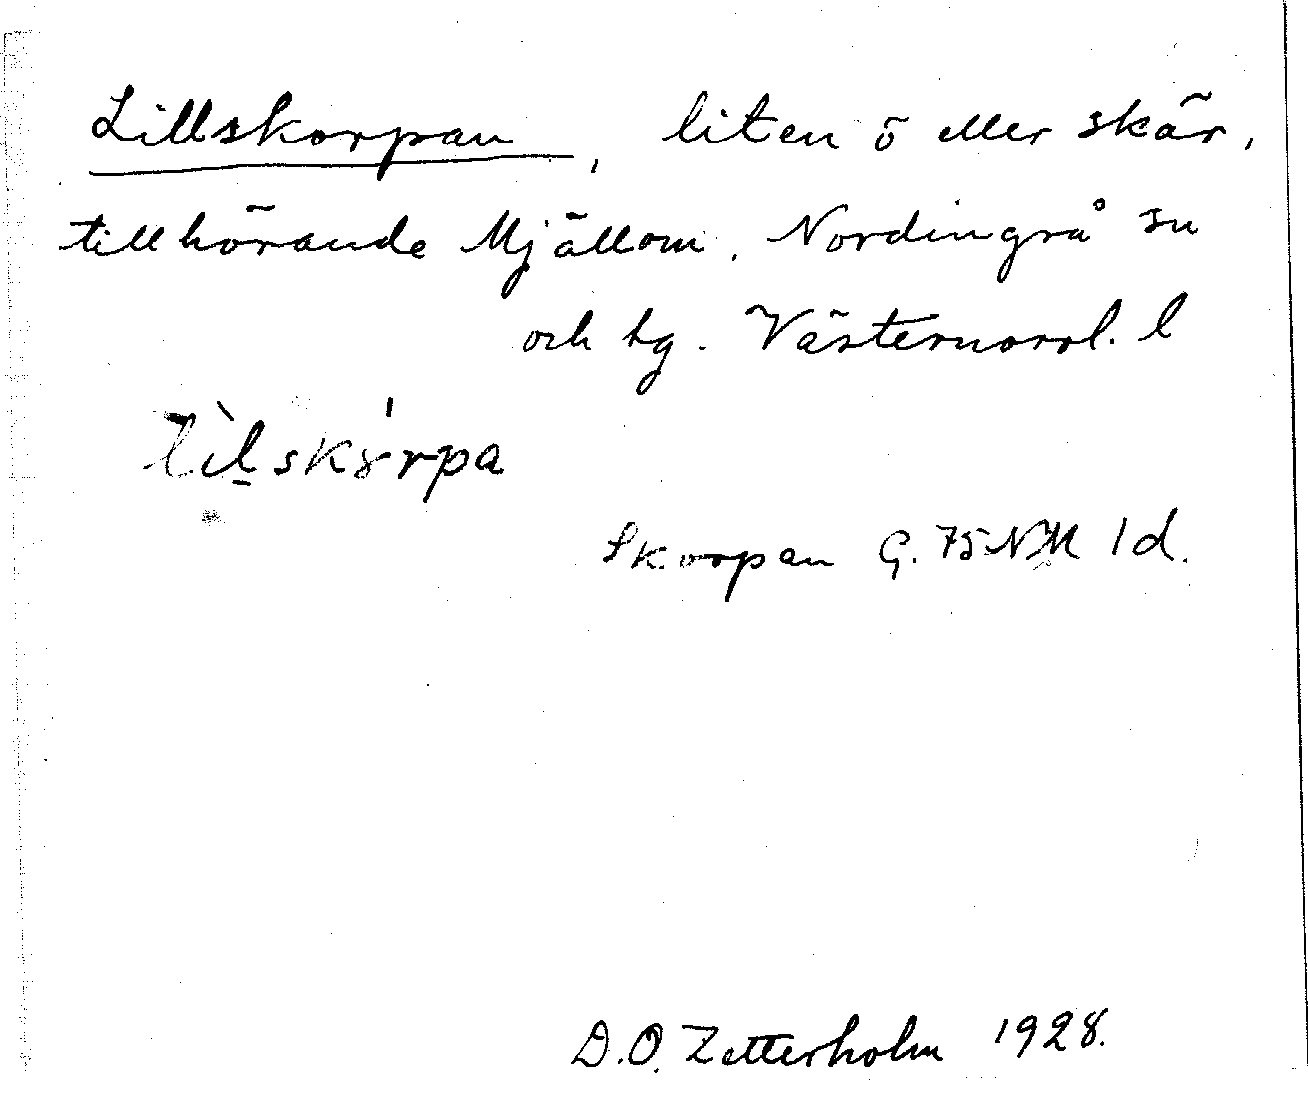 Lillskorpan, liten ö eller skär,
tillhörande Mjällom. Nordingrå sn
och tg. Västernorrl. l
lìl̠skȣ́rpa
Skorpan G. 75 NM 1d.
D.O. Zetterholm 1928.